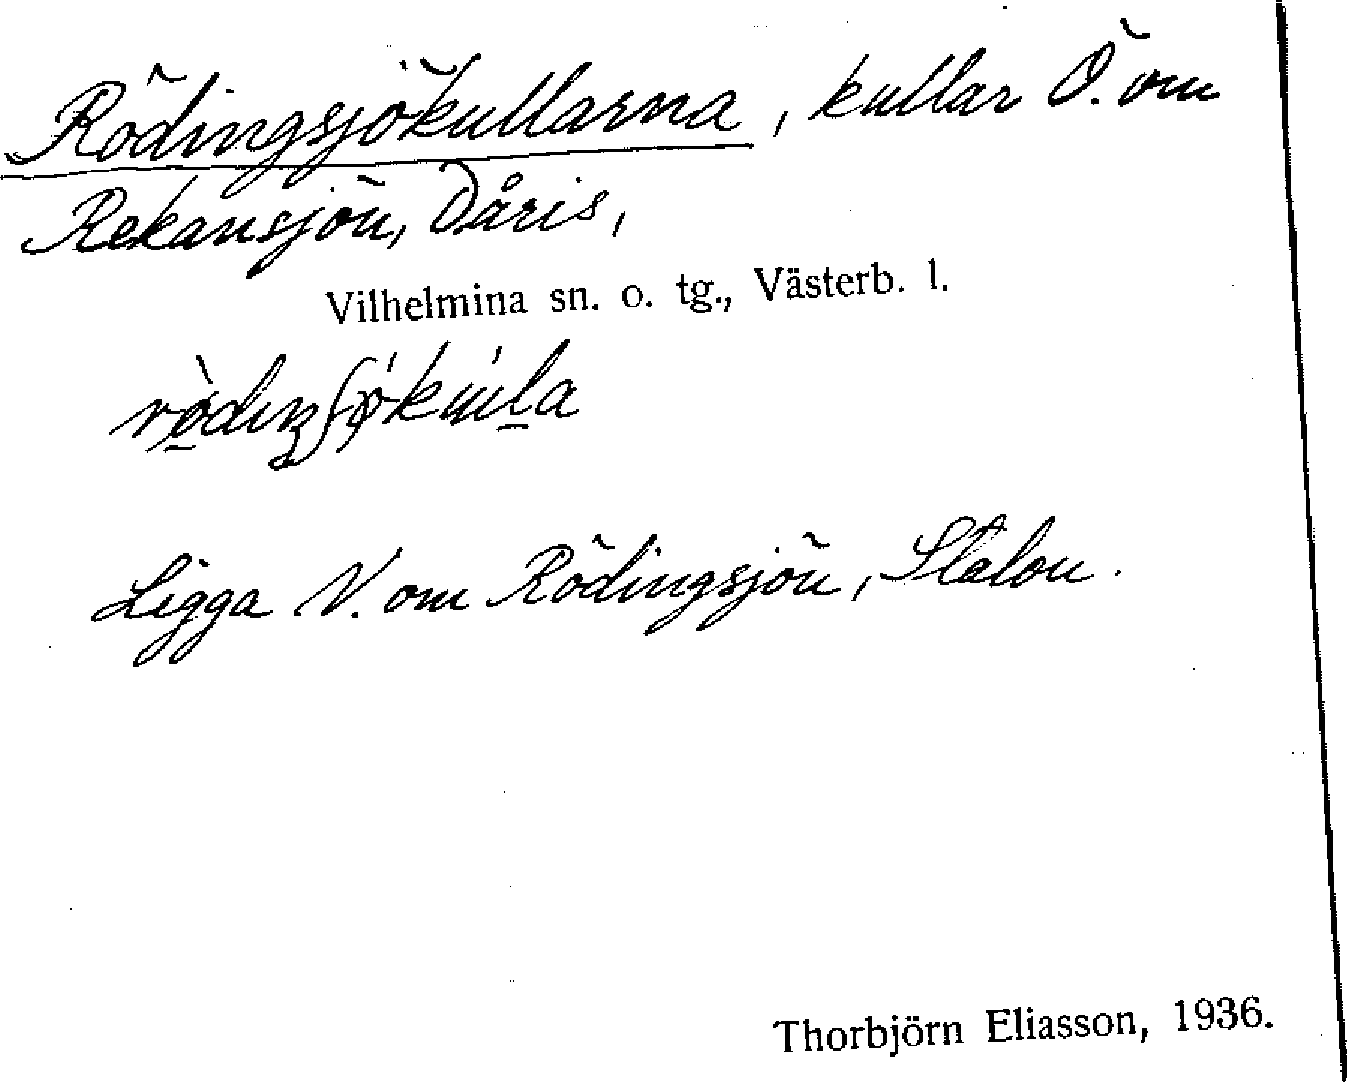 Rödingsjökullarna, kullar Ö. om
Rekansjön, Dåris,
Vilhelmina sn. o. tg., Västerb. l.
Ligga V. om Rödingsjön, Stalon.
Thorbjörn Eliasson, 1936.